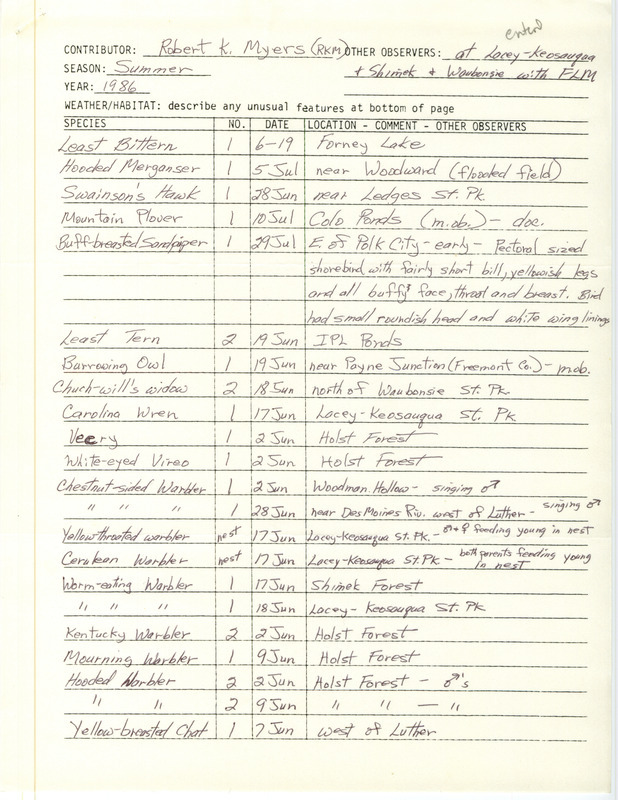 entered
CONTRIBUTOR: Robert K. Myers (RKM) OTHER OBSERVERS: at Lacey-Keosauqua
SEASON: Summer + Shimek + Waubonsie with FLM
YEAR: 1986
WEATHER/HABITAT: describe any unusual features at bottom of page
SPECIES NO. DATE LOCATION - COMMENT - OTHER OBSERVERS
Least Bittern 1 6-19 Forney Lake
Hooded Merganser 1 5 Jul near Woodward (flooded field)
Swainson's Hawk 1 28 Jun near Ledges St. Pk
Mountain Plover 1 10 Jul Colo Ponds (m.ob.) - doc.
Buff-breasted Sandpiper 1 29 Jul E. of Polk City - early - Pectoral sized
shorebird with fairly short bill, yellowish legs
and all buffy face, throat and breast. Bird
had small roundish head and white wing linings
Least Tern 2 19 Jun IPL Ponds
Burrowing Owl 1 19 Jun near Payne Junction (Freemont Co.) - m.ob.
Chuck-will's widow 2 18 Jun north of Waubonsie St. Pk
Carolina Wren 1 17 Jun Lacey-Keosauqua St. Pk
Veery 1 2 Jun Holst Forest
White-eyed Vireo 1 2 Jun Holst Forest
Chestnut-sided Warbler 1 2 Jun Woodman Hollow - singing ♂
" " " 1 28 Jun near Des Moines Riv. west of Luther - singing ♂
Yellow-throated warbler nest 17 Jun Lacey-Keosauqua St. Pk. - ♂+♀ feeding young in nest
Cerulean Warbler nest 17 Jun Lacey-Keosauqua St. Pk. - both parents feeding young in nest
Worm-eating Warbler 1 17 Jun Shimek Forest
" " " 1 18 Jun Lacey-Keosauqua St. Pk
Kentucky Warbler 2 2 Jun Holst Forest
Mourning Warbler 1 9 Jun Holst Forest
Hooded Warbler 2 2 Jun Holst Forest - ♂'s
" " 2 9 Jun " " — "
Yellow-breasted Chat 1 7 Jun west of Luther